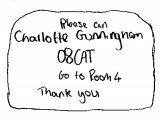 Please can
Charlotte Gunningham
08CAT
Go to Room 4
Thank you